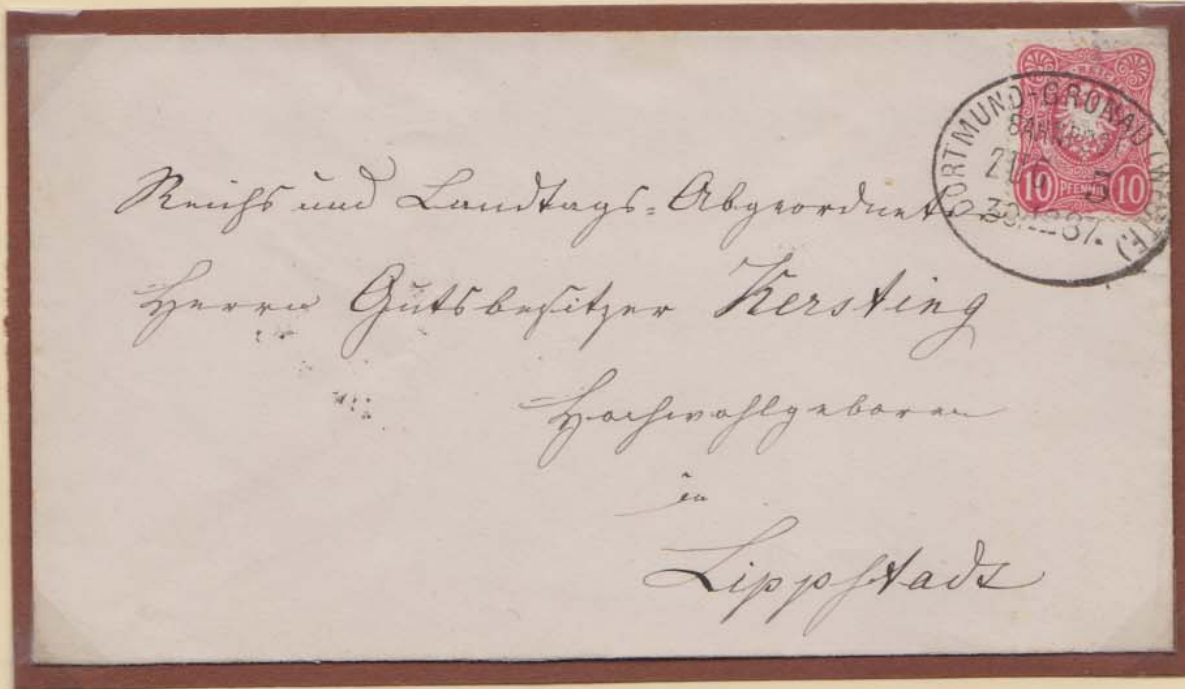 REICH
DORTMUND-GRONAU (WESTF.)
BAHNPOST
10 PFENNIG 10
Reichs und Landtags-Abgeordneten
Herrn Gutsbesitzer Kersting
Hochwohlgeboren
in
Lippstadt